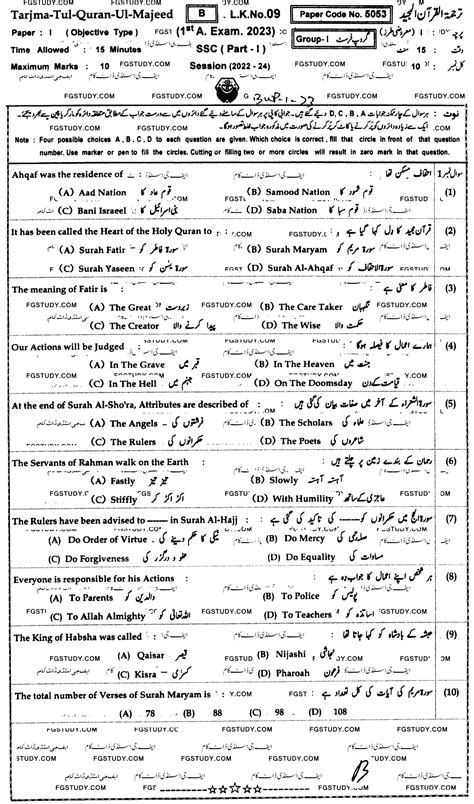 Tarjma-Tul-Quran-Ul-Majeed B L.K.No.09 Paper Code No. 5053 ترجمۃ القرآن المجید
Paper : I (Objective Type) FGST (1st A. Exam. 2023) Group-I گروپ فرسٹ (معروضی طرز)
Time Allowed : 15 Minutes SSC (Part - I) FGSTUDY.COM وقت : 15 منٹ
Maximum Marks : 10 FGSTUDY.COM Session (2022 - 24) FGSTUDY.COM کل نمبر : 10
Note : Four possible choices A , B , C , D to each question are given. Which choice is correct , fill that circle in front of that question
number. Use marker or pen to fill the circles. Cutting or filling two or more circles will result in zero mark in that question.
Ahqaf was the residence of : احقاف مسکن تھا : سوال نمبر 1
(A) Aad Nation قوم عاد کا (B) Samood Nation قوم ثمود کا (1)
(C) Bani Israeel بنی اسرائیل کا (D) Saba Nation قوم سبا کا
It has been called the Heart of the Holy Quran to : FGSTUDY.COM قرآن مجید کا دل کہا گیا ہے : (2)
FGSTUDY.COM (A) Surah Fatir سورۃ فاطر کو (B) Surah Maryam سورۃ مریم کو
FGSTUDY.COM (C) Surah Yaseen سورۃ یٰسٓ کو FGST (D) Surah Al-Ahqaf سورۃ الاحقاف کو FGSTUDY.COM
The meaning of Fatir is : FGSTUDY.COM فاطر کا معنی ہے : (3)
FGSTUDY.COM (A) The Great زبردست FGSTUDY.COM (B) The Care Taker نگہبان
(C) The Creator پیدا کرنے والا (D) The Wise حکمت والا
Our Actions will be Judged ہمارے اعمال کا فیصلہ ہوگا : (4)
(A) In The Grave قبر میں (B) In The Heaven جنت میں
(C) In The Hell جہنم میں (D) On The Doomsday قیامت کے دن
At the end of Surah Al-Sho'ra, Attributes are described of : سورۃ الشعراء کے آخر میں صفات بیان کی گئی ہیں : (5)
(A) The Angels فرشتوں کی (B) The Scholars علماء کی
(C) The Rulers حکمرانوں کی (D) The Poets شاعروں کی
The Servants of Rahman walk on the Earth : رحمان کے بندے زمین پر چلتے ہیں : (6)
(A) Fastly تیز تیز (B) Slowly آہستہ آہستہ
(C) Stiffly اکڑ اکڑ کر (D) With Humility عاجزی کے ساتھ FGSTUDY.COM
The Rulers have been advised to ------ in Surah Al-Hajj : سورۃ الحج میں حکمرانوں کو ------ کی تاکید کی گئی ہے : (7)
(A) Do Order of Virtue نیکی کا حکم دینے کی (B) Do Mercy صلہ رحمی کی
(C) Do Forgiveness عفو و درگزر کی (D) Do Equality مساوات کی
Everyone is responsible for his Actions : ہر شخص اپنے اعمال کا جواب دہ ہے : (8)
(A) To Parents والدین کو (B) To Police پولیس کو
(C) To Allah Almighty اللہ تعالیٰ کو FGSTUDY.COM (D) To Teachers اساتذہ کو FGSTUDY.COM
The King of Habsha was called : حبشہ کے بادشاہ کو کہا جاتا تھا : (9)
FGSTUDY.COM (A) Qaisar قیصر (B) Nijashi نجاشی
(C) Kisra کسریٰ (D) Pharoah فرعون FGSTUDY.COM
The total number of Verses of Surah Maryam is : سورۃ مریم کی آیات کی کل تعداد ہے : (10)
(A) 78 (B) 88 (C) 98 (D) 108
FGSTUDY.COM FGSTUDY.COM FGSTUDY.COM FGSTUDY.COM